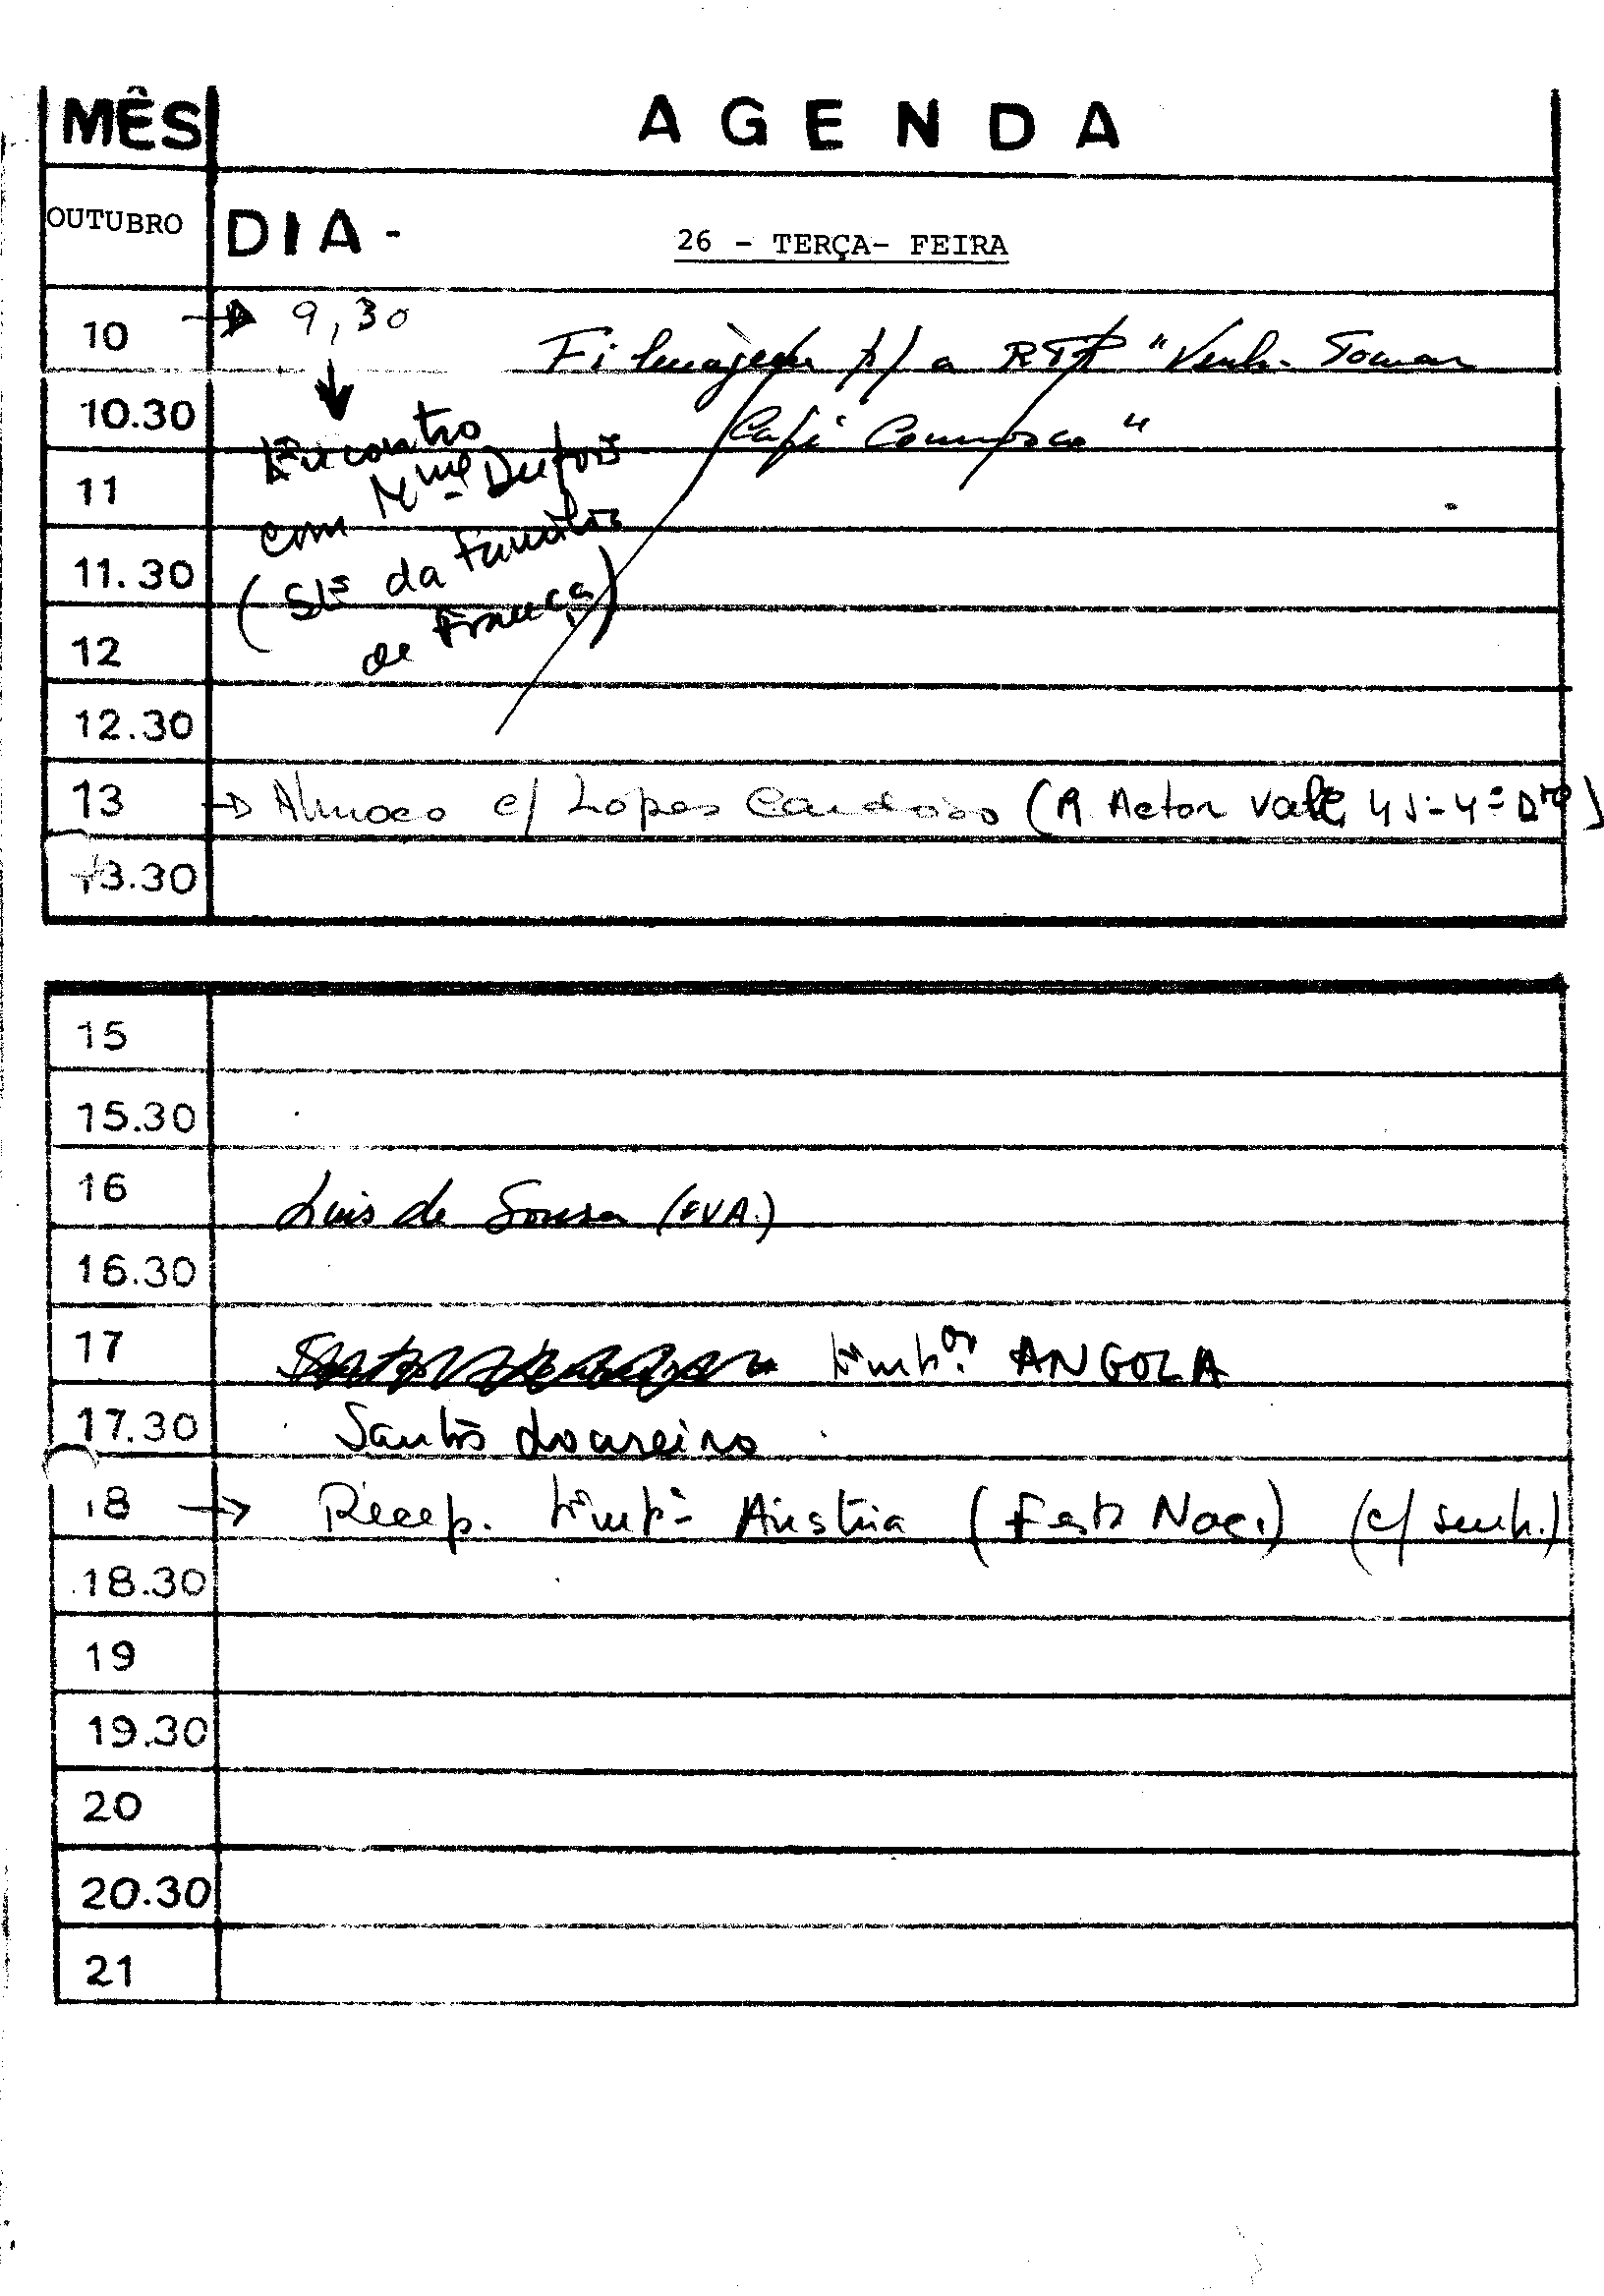 MÊS AGENDA
OUTUBRO DIA - 26 - TERÇA- FEIRA
10 → 9,30 Filmagem p/ a RTP "Venha Tomar
10.30 Café Connosco"
Encontro
11 com Mme Dufoix
11.30 (SEs da Família
12 de França)
12.30
13 → Almoço c/ Lopes Cardoso (R. Actor Vale, 45-4º Dto)
13.30
15
15.30
16 Luis de Sousa (EVA.)
16.30
17 Embor. ANGOLA
17.30 Santos Loureiro
18 → Recep. Embª Austria (Festa Nac.) (c/ senh.)
18.30
19
19.30
20
20.30
21